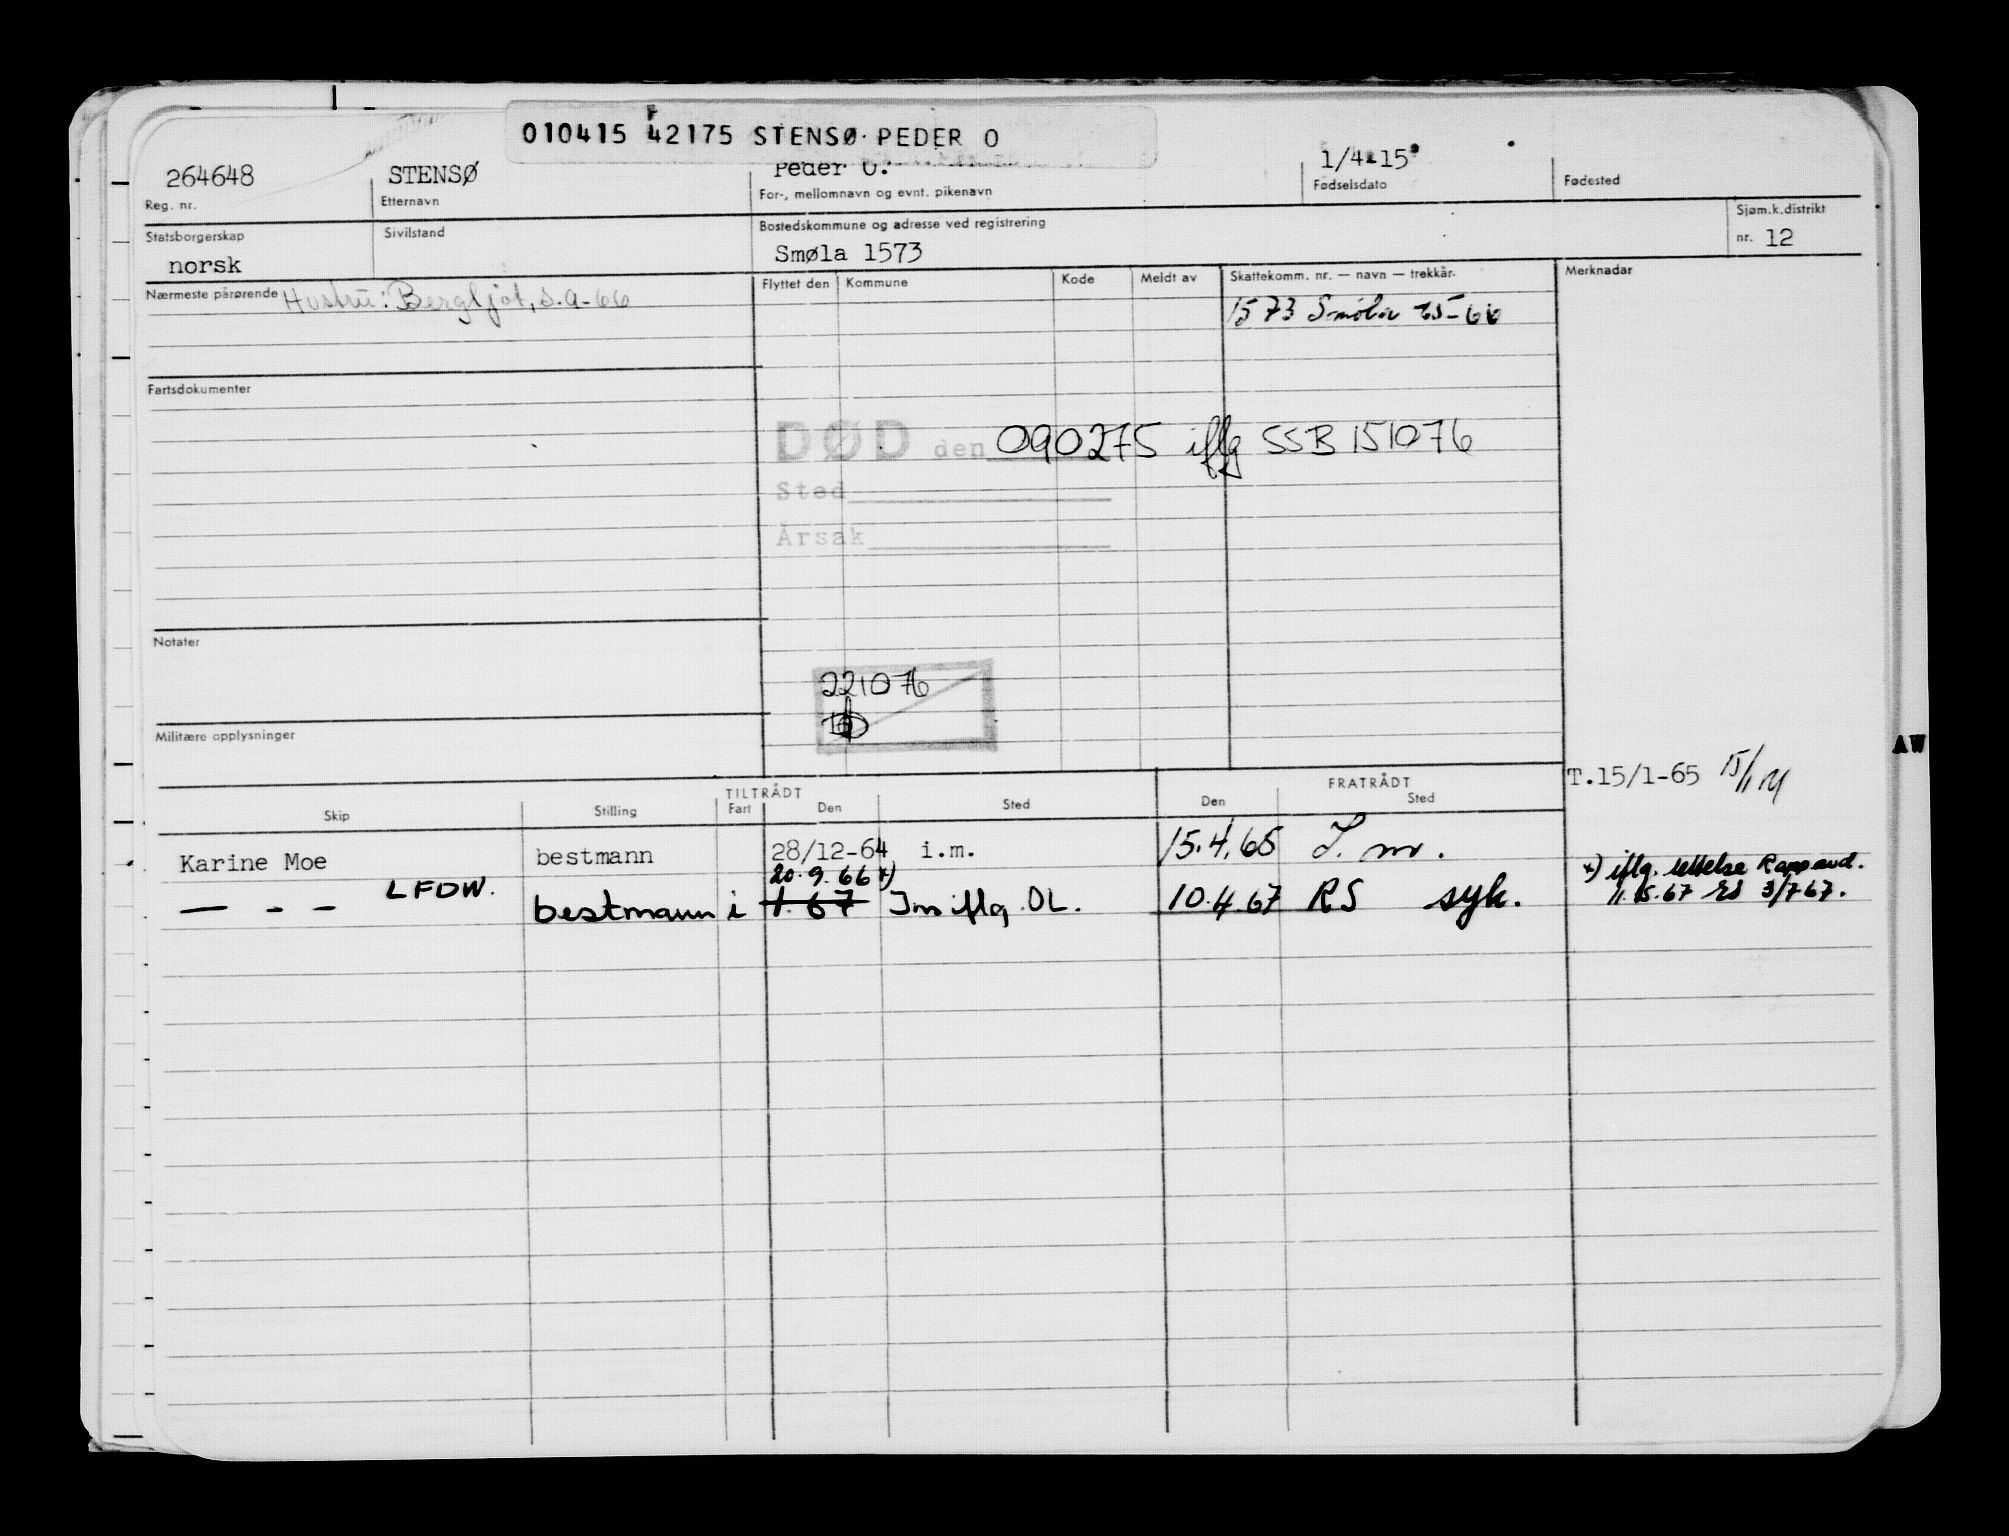 010415 42175 STENSØ PEDER O
264648 STENSØ Peder O. 1/4-15
Reg. nr. Etternavn For-, mellomnavn og evnt. pikenavn Fødselsdato Fødested
Statsborgerskap Sivilstand Bostedskommune og adresse ved registrering Sjøm.k.distrikt
norsk Smøla 1573 nr. 12
Nærmeste pårørende Hustru: Bergljot, s.a-66 Flyttet den Kommune Kode Meldt av Skattekomm. nr. — navn — trekkår. Merknader
1573 Smøla 65-66
Fartsdokumenter
DØD den 090275 iflg SSB 151076
Sted
Årsak
Notater
221076
Militære opplysninger
T.15/1-65
TILTRÅDT FRATRÅDT
Skip Stilling Fart Den Sted Den Sted
Karine Moe bestmann 28/12-64 i.m. 15.4.65 I. m.
20.9.66 *)
— - — LFDW. bestmann i 1.67 Im iflg. OL. 10.4.67 RS syk.
*) iflg. rettelse
3/7 67.
AW